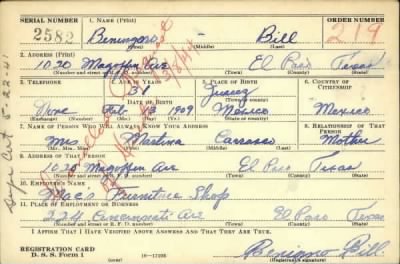 SERIAL NUMBER 1. NAME (Print) ORDER NUMBER
2582 Bill 219
(First) (Middle) (Last)
2. ADDRESS (Print)
1030 Magoffin Ave El Paso Texas
(Number and street or R. F. D. number) (Town) (County) (State)
3. TELEPHONE 4. AGE IN YEARS 5. PLACE OF BIRTH 6. COUNTRY OF CITIZENSHIP
31 Juarez
DATE OF BIRTH
None Feb 13 1909 Mexico Mexico
(Exchange) (Number) (Mo.) (Day) (Yr.) (State or country)
7. NAME OF PERSON WHO WILL ALWAYS KNOW YOUR ADDRESS 8. RELATIONSHIP OF THAT PERSON
Mrs Martina Carrasco Mother
(Mr., Mrs., Miss) (First) (Middle) (Last)
9. ADDRESS OF THAT PERSON
1030 Magoffin Ave El Paso Texas
(Number and street or R. F. D. number) (Town) (County) (State)
10. EMPLOYER'S NAME
Mac's Furniture Shop
11. PLACE OF EMPLOYMENT OR BUSINESS
El Paso Texas
(Number and street or R. F. D. number) (Town) (County) (State)
I AFFIRM THAT I HAVE VERIFIED ABOVE ANSWERS AND THAT THEY ARE TRUE.
REGISTRATION CARD
D. S. S. Form 1 (over) 16—17105 Benigno Bill
(Registrant's signature)